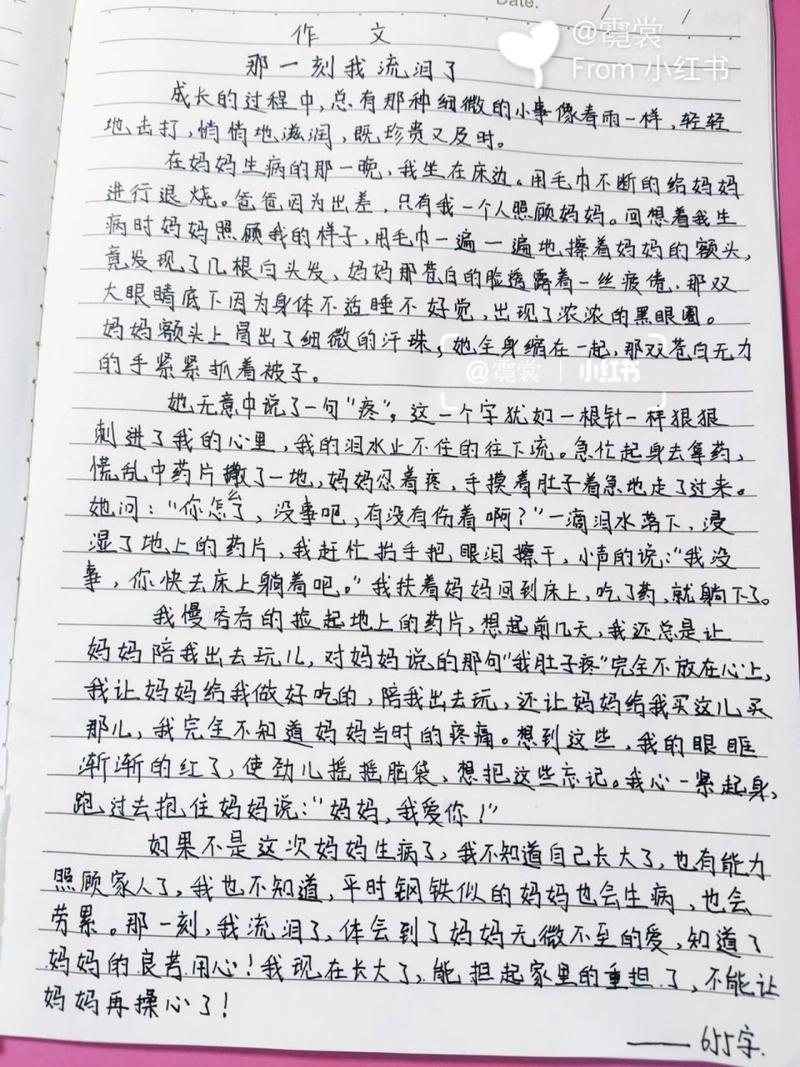 Date.
@霓裳
From 小红书
作 文
那一刻我流泪了
成长的过程中，总有那种细微的小事像春雨一样，轻轻
地击打，悄悄地滋润，既珍贵又及时。
在妈妈生病的那一晚，我坐在床边。用毛巾不断的给妈妈
进行退烧。爸爸因为出差，只有我一个人照顾妈妈。回想着我生
病时妈妈照顾我的样子，用毛巾一遍一遍地擦着妈妈的额头，
竟发现了几根白头发，妈妈那苍白的脸透露着一丝疲倦，那双
大眼睛底下因为身体不适睡不好觉，出现了浓浓的黑眼圈。
妈妈额头上冒出了细微的汗珠，她全身缩在一起，那双苍白无力
的手紧紧抓着被子。
@霓裳 | 小红书
她无意中说了一句“疼”。这一个字犹如一根针一样狠狠
刺进了我的心里，我的泪水止不住的往下流。急忙起身去拿药，
慌乱中药片撒了一地，妈妈忍着疼，手摸着肚子着急地走了过来。
她问：“你怎么了，没事吧，有没有伤着啊？”一滴泪水落下，浸
湿了地上的药片，我赶忙抬手把眼泪擦干，小声的说：“我没
事，你快去床上躺着吧。”我扶着妈妈回到床上，吃了药，就躺下了。
我慢吞吞的捡起地上的药片，想起前几天，我还总是让
妈妈陪我出去玩儿，对妈妈说的那句“我肚子疼”完全不放在心上，
我让妈妈给我做好吃的，陪我出去玩，还让妈妈给我买这儿买
那儿，我完全不知道妈妈当时的疼痛。想到这些，我的眼眶
渐渐的红了，使劲儿摇摇脑袋，想把这些忘记。我心一紧起身，
跑过去抱住妈妈说：“妈妈，我爱你！”
如果不是这次妈妈生病了，我不知道自己长大了，也有能力
照顾家人了，我也不知道，平时钢铁似的妈妈也会生病，也会
劳累。那一刻，我流泪了，体会到了妈妈无微不至的爱，知道了
妈妈的良苦用心！我现在长大了，能担起家里的重担了，不能让
妈妈再操心了！
——655字.